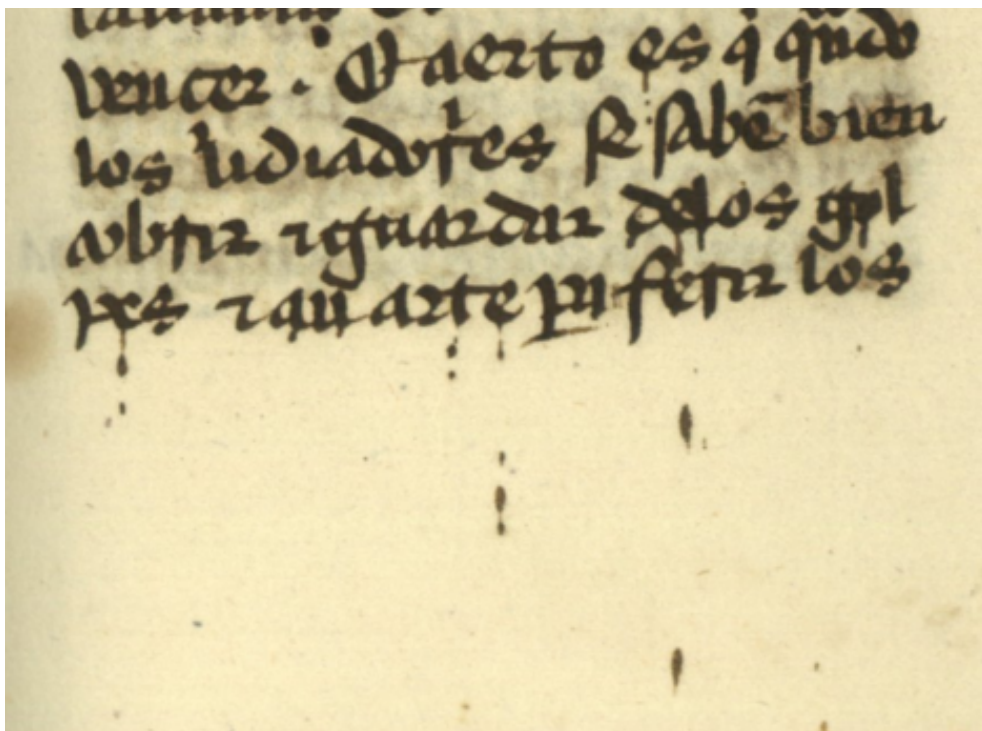 vencer . Et cierto es q̃ qũdo
los lidiadores se sabẽ bien
cobrir ⁊ guardar delos gol
pes ⁊ arte ferir los